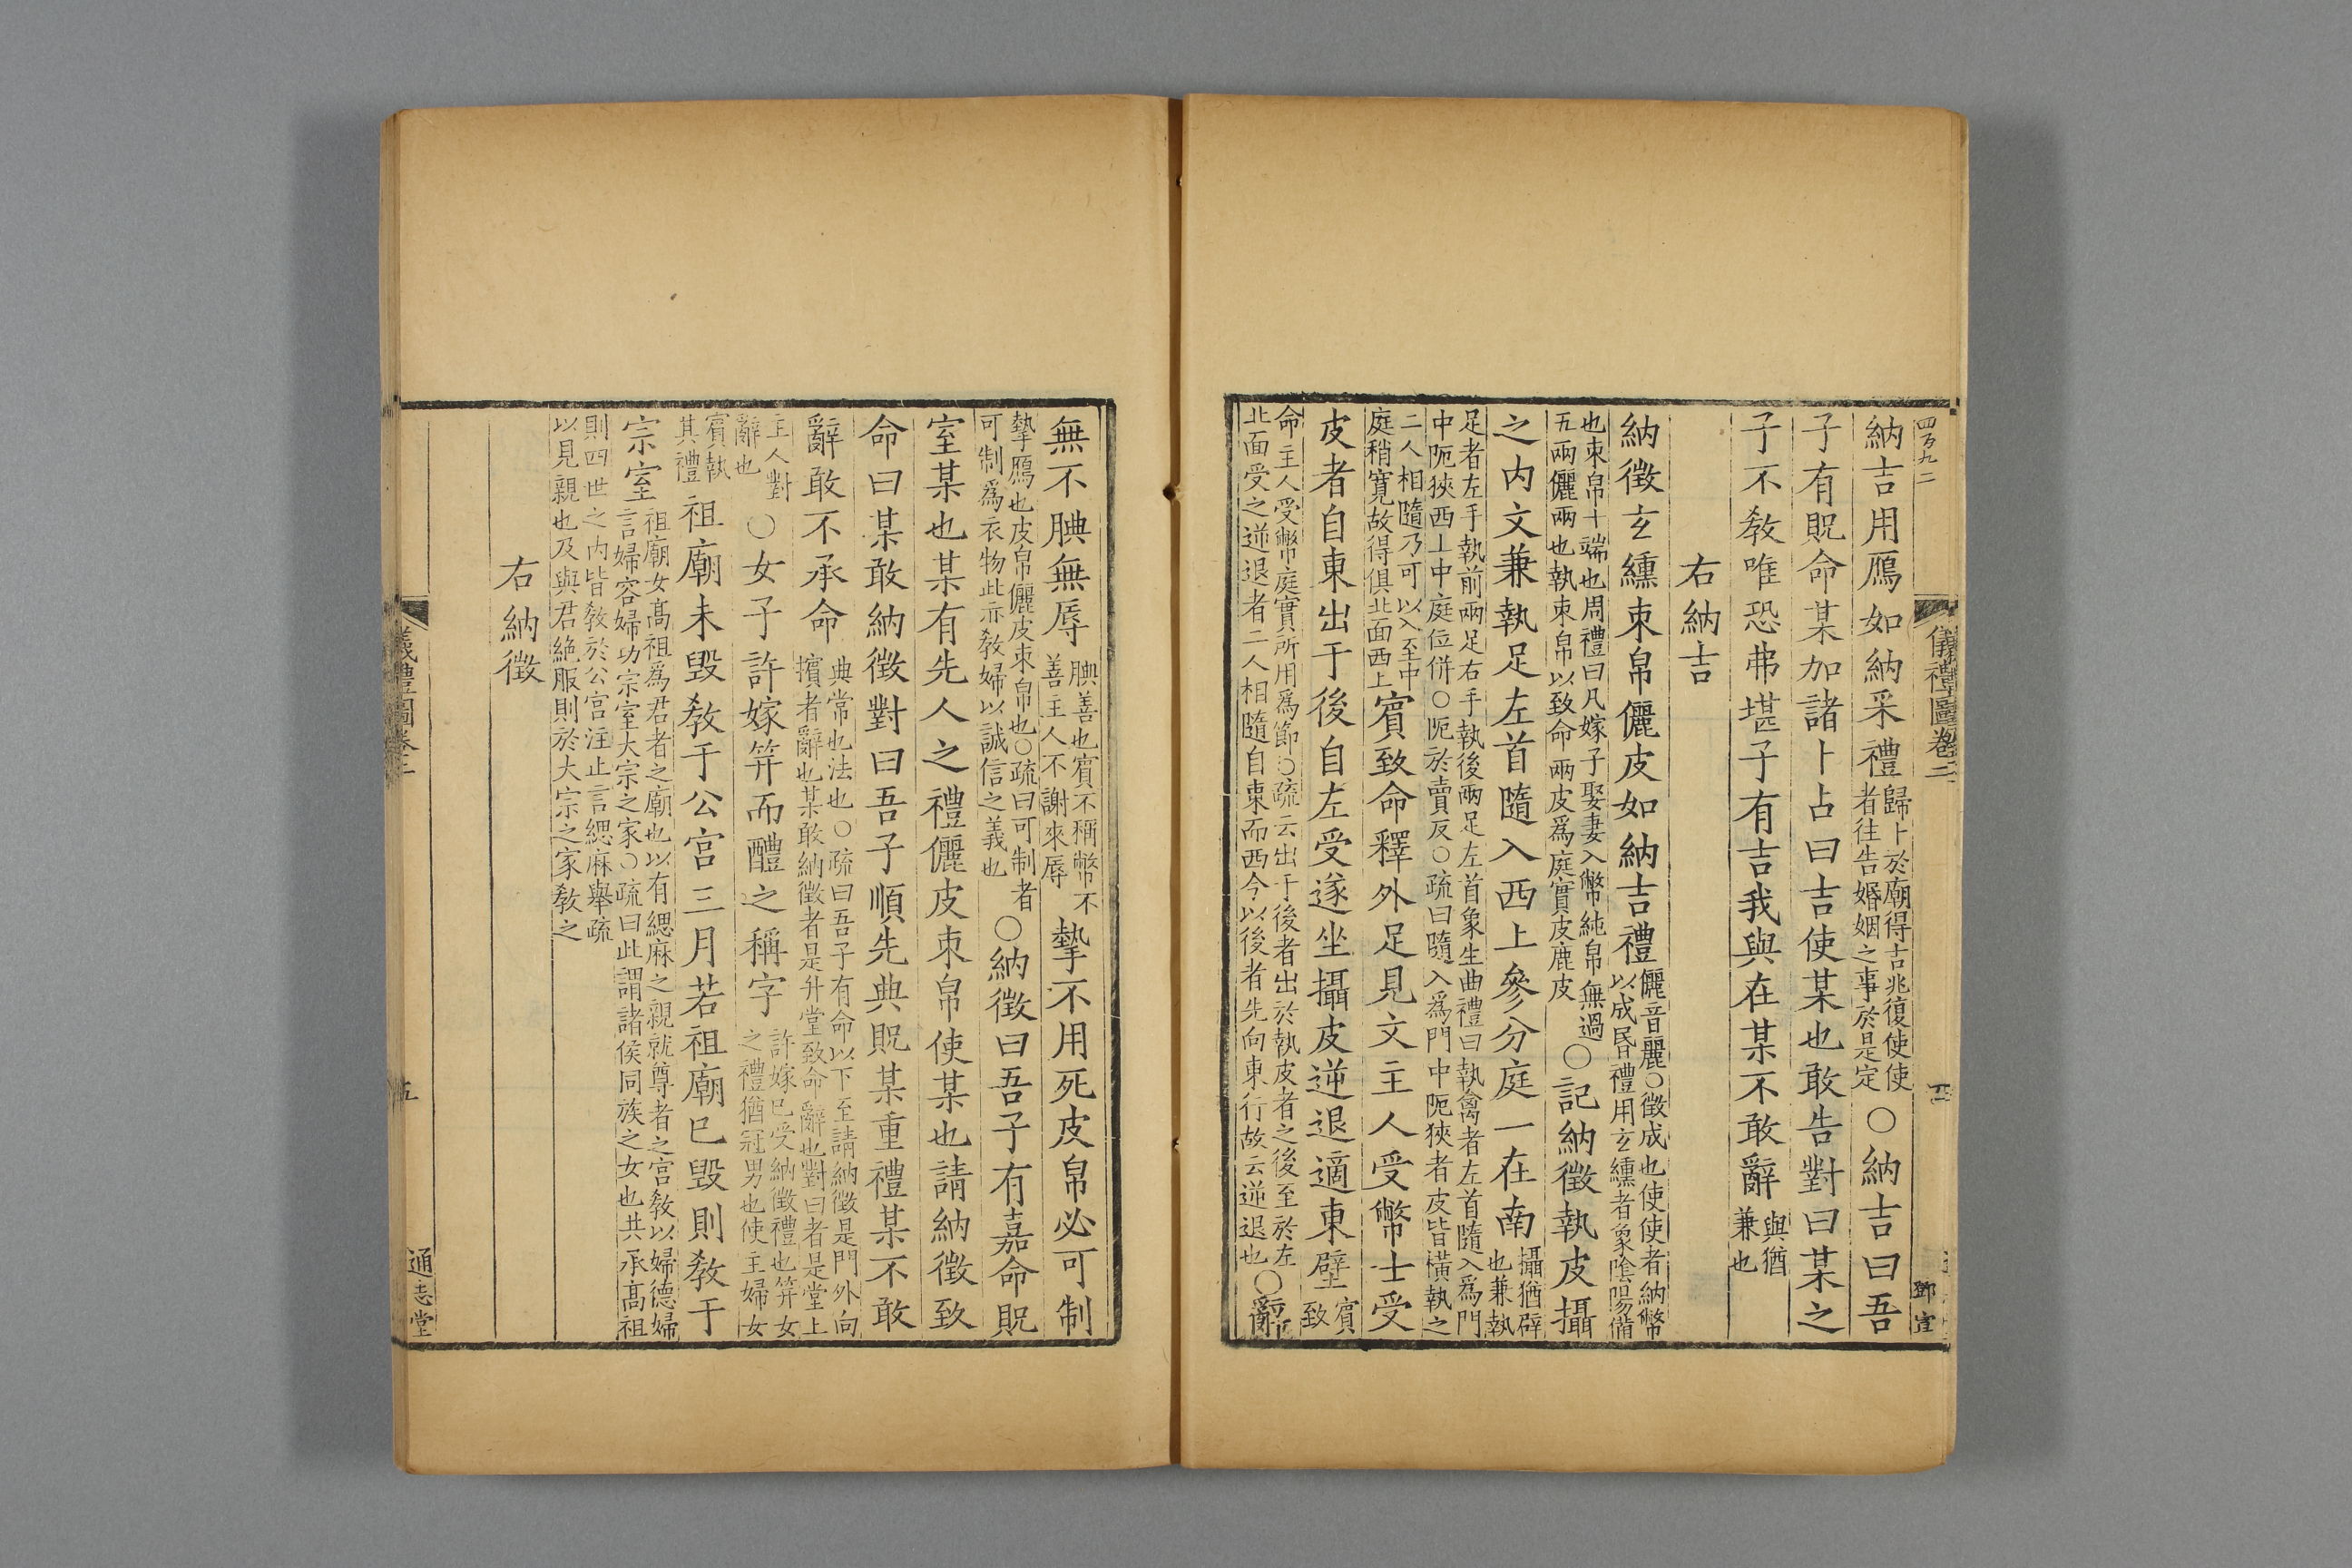 四百九二
儀禮圖卷二
鄧宣
納吉用鴈如納采禮歸卜於廟得吉兆復使使
者往告婚姻之事於是定〇納吉曰吾
子有貺命某加諸卜占曰吉使某也敢告對曰某之
子不敎唯恐弗堪子有吉我與在某不敢辭與猶
兼也
右納吉
納徵玄纁束帛儷皮如納吉禮儷音麗〇徵成也使使者納幣
以成昏禮用玄纁者象陰陽備
也束帛十端也周禮曰凡嫁子娶妻入幣純帛無過
五兩儷兩也執束帛以致命兩皮爲庭實皮鹿皮〇記納徵執皮攝
之内文兼執足左首隨入西上參分庭一在南攝猶辟
也兼執
足者左手執前兩足右手執後兩足左首象生曲禮曰執禽者左首隨入爲門
中阨狹西上中庭位併〇阨於賣反〇疏曰隨入爲門中阨狹者皮皆橫執之
二人相隨乃可以入至中
庭稍寬故得俱北面西上賓致命釋外足見文主人受幣士受
皮者自東出于後自左受遂坐攝皮逆退適東壁賓
致
命主人受幣庭實所用爲節〇疏云出于後者出於執皮者之後至於左
北面受之逆退者二人相隨自東而西今以後者先向東行故云逆退也〇辭
無不腆無辱腆善也賓不稱幣不
善主人不謝來辱摯不用死皮帛必可制
摯鴈也皮帛儷皮束帛也〇疏曰可制者
可制爲衣物此亦敎婦以誠信之義也〇納徵曰吾子有嘉命貺
室某也某有先人之禮儷皮束帛使某也請納徵致
命曰某敢納徵對曰吾子順先典貺某重禮某不敢
辭敢不承命典常也法也〇疏曰吾子有命以下至請納徵是門外向
擯者辭也某敢納徵者是升堂致命辭也對曰者是堂上
主人對
辭也〇女子許嫁笄而醴之稱字許嫁巳受納徵禮也笄女
之禮猶冠男也使主婦女
賓執
其禮祖廟未毀敎于公宫三月若祖廟巳毀則敎于
宗室祖廟女高祖爲君者之廟也以有緦麻之親就尊者之宫敎以婦德婦
言婦容婦功宗室大宗之家〇疏曰此謂諸侯同族之女也共承高祖
則四世之内皆敎於公宫注止言緦麻舉疏
以見親也及與君絶服則於大宗之家敎之
右納徵
儀禮圖卷二
五
通志堂